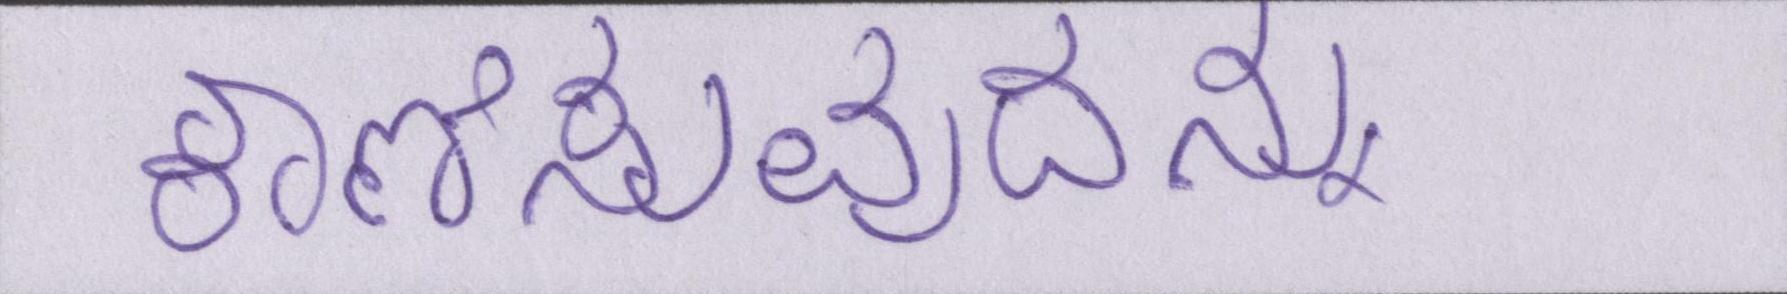 ಕಾಣಿಸುವುದನ್ನೂ